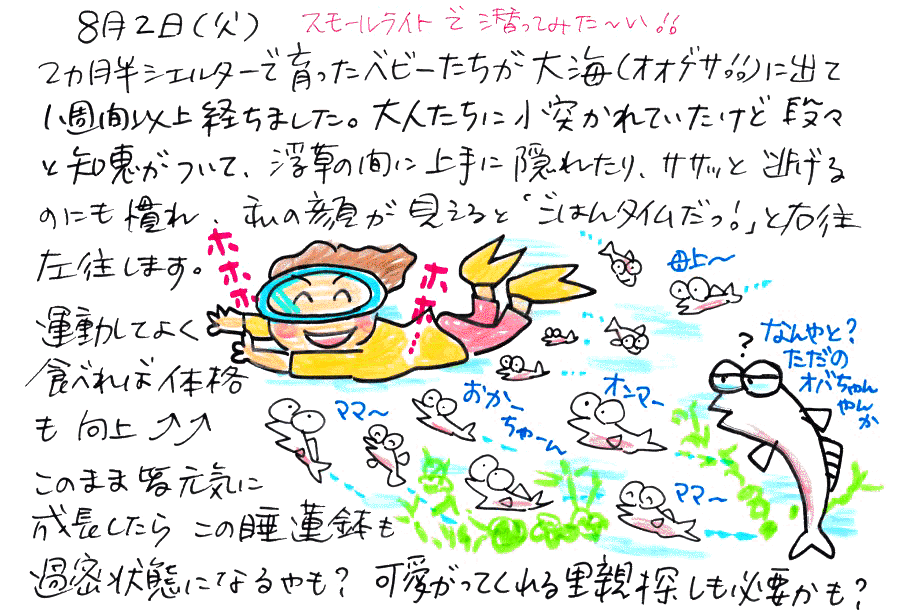 8月2日(火) スモールライトで潜ってみた〜い!!
2カ月半シェルターで育ったベビーたちが大海(オオゲサ!!)に出て
1週間以上経ちました。大人たちに小突かれていたけど段々
と知恵がついて、浮草の間に上手に隠れたり、ササッと逃げる
のにも慣れ、私の顔が見えると「ごはんタイムだっ!」と右往
左往します。
ホホホ
ホホ
母上〜
運動してよく
食べれば体格
も向上↗↗
ママ〜
おかーちゃーん
オンマー
ママ〜
?
なんやと?
ただの
オバちゃん
やんか
このまま皆元気に
成長したらこの睡蓮鉢も
過密状態になるやも?可愛がってくれる里親探しも必要かも?